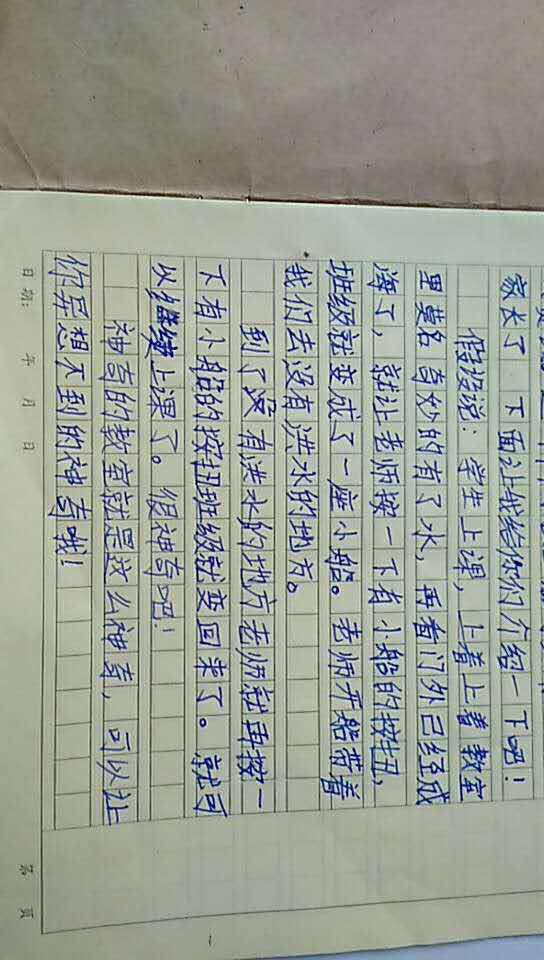 家长了 下面让我给你们介绍一下吧！
假设说：学生上课，上着上着教室
里莫名奇妙的有了水，再看门外已经成
海了，就让老师按一下有小船的按扭，
班级就变成了一座小船。老师开船带着
我们去没有洪水的地方。
到了没有洪水的地方老师就再按一
下有小船的按扭班级就变回来了。就可
以继续上课了。很神奇吧！
神奇的教室就是这么神奇，可以让
你异想不到的神奇哦！
日期： 年 月 日
第 頁